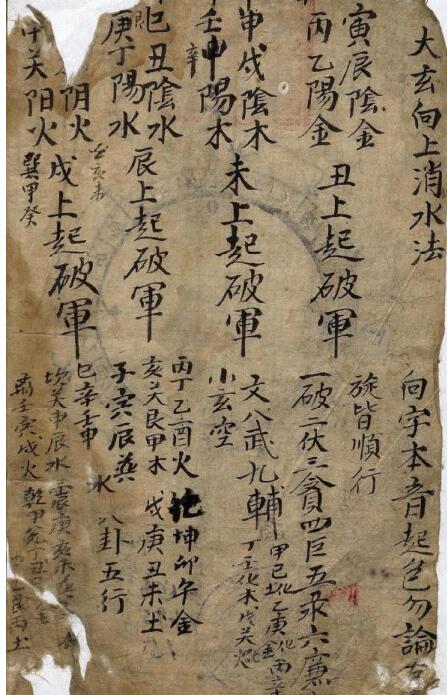 大玄向上消水法
向字本音起包勿論
寅辰陰金
丙乙陽金
丑上起破軍
旋皆順行
一破二伏三貪四巨五录六廉
申戌陰木
壬辛陽木
未上起破軍
文八武九輔
甲己化 乙庚化金 丙辛
丁壬化木 戊关
小玄空
巳丑陰水
庚丁陽水
辰上起破軍
丙丁乙酉火 乾坤卯午金
亥关艮甲木 戊庚丑未土
子寅辰巽 水 八卦五行
巳辛壬申
阴火
关阳火
壬亥未
巽甲癸
戌上起破軍
坎关申辰水 震庚亥未
壬寅戌火 乾甲
艮丙土